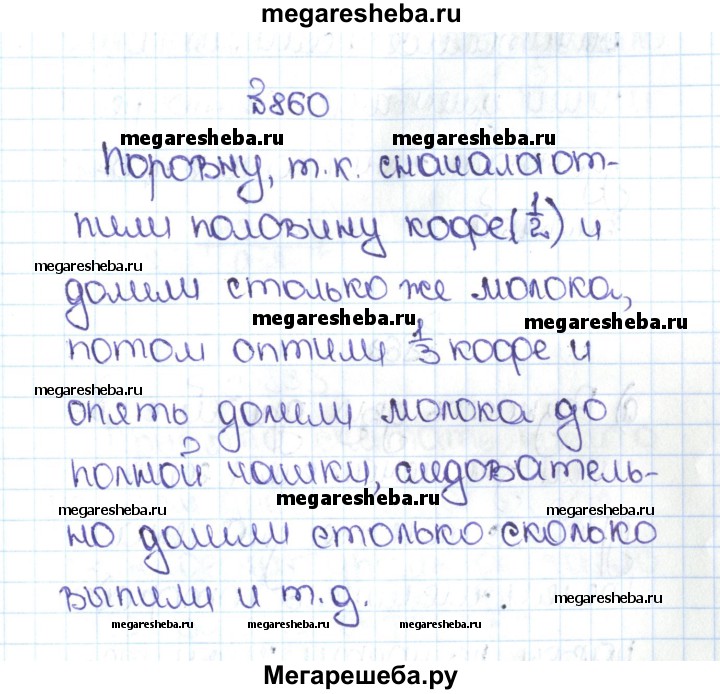 megaresheba.ru
№860
megaresheba.ru megaresheba.ru
Поровну, т.к. сначала от-
пили половину кофе(1/2) и
megaresheba.ru
долили столько же молока,
megaresheba.ru megaresheba.ru
потом отпили 1/3 кофе и
megaresheba.ru
опять долили молока до
полной чашки, следователь-
megaresheba.ru
megaresheba.ru megaresheba.ru
но долили столько сколько
выпили и т.д. megaresheba.ru
megaresheba.ru megaresheba.ru megaresheba.ru
Мегарешеба.ру